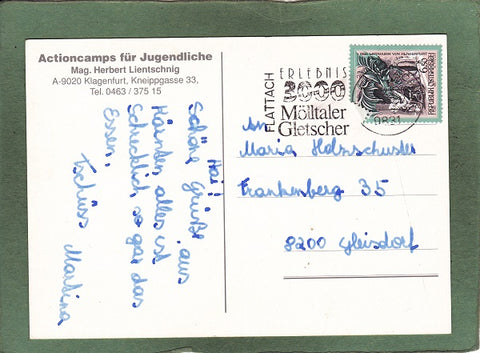 Actioncamps für Jugendliche
Mag. Herbert Lientschnig
A-9020 Klagenfurt, Kneippgasse 33,
Tel. 0463 / 375 15
Hai!
Schöne Grüße aus
Kärnten alles ist
Schrecklich so gar das
Essen.
Tschüss Martina
FLATTACH
ERLEBNIS
3000
Mölltaler
Gletscher
An
Maria Holzschuster
Frankenberg 35
8200 Gleisdorf